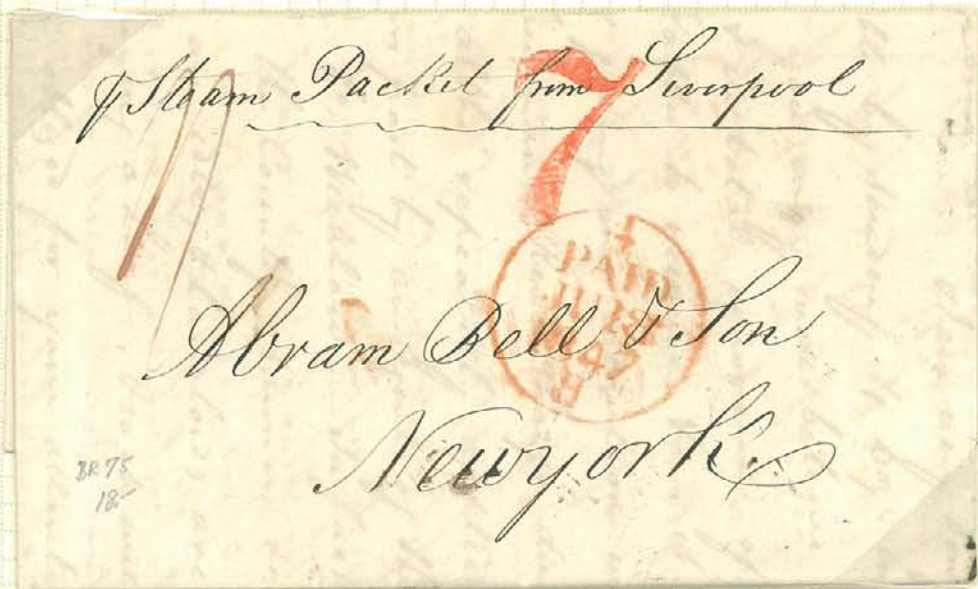 ⅌ Steam Packet from Liverpool
7
PAID
1847
Abram Bell & Son
Newyork
BR 75
18.-